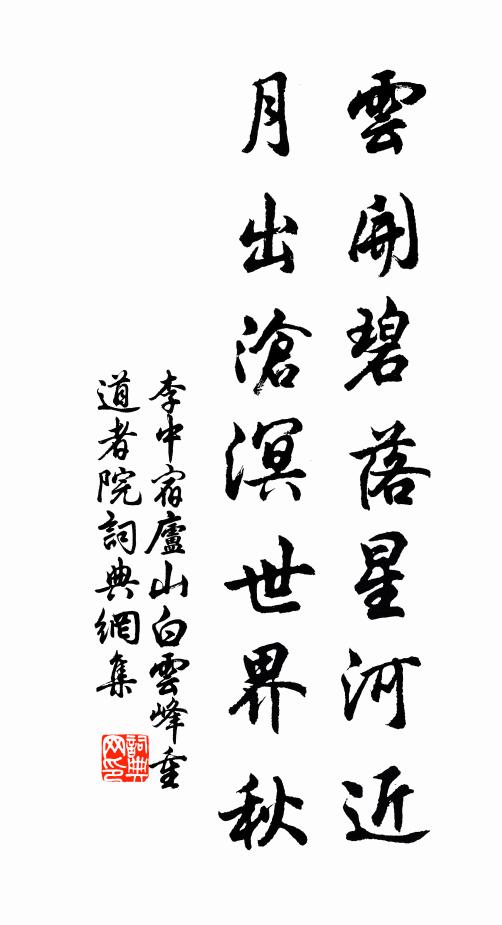 雲開碧落星河近
月出滄溟世界秋
李中宿廬山白雲峰重
道者院詞典網集
詞典
网印